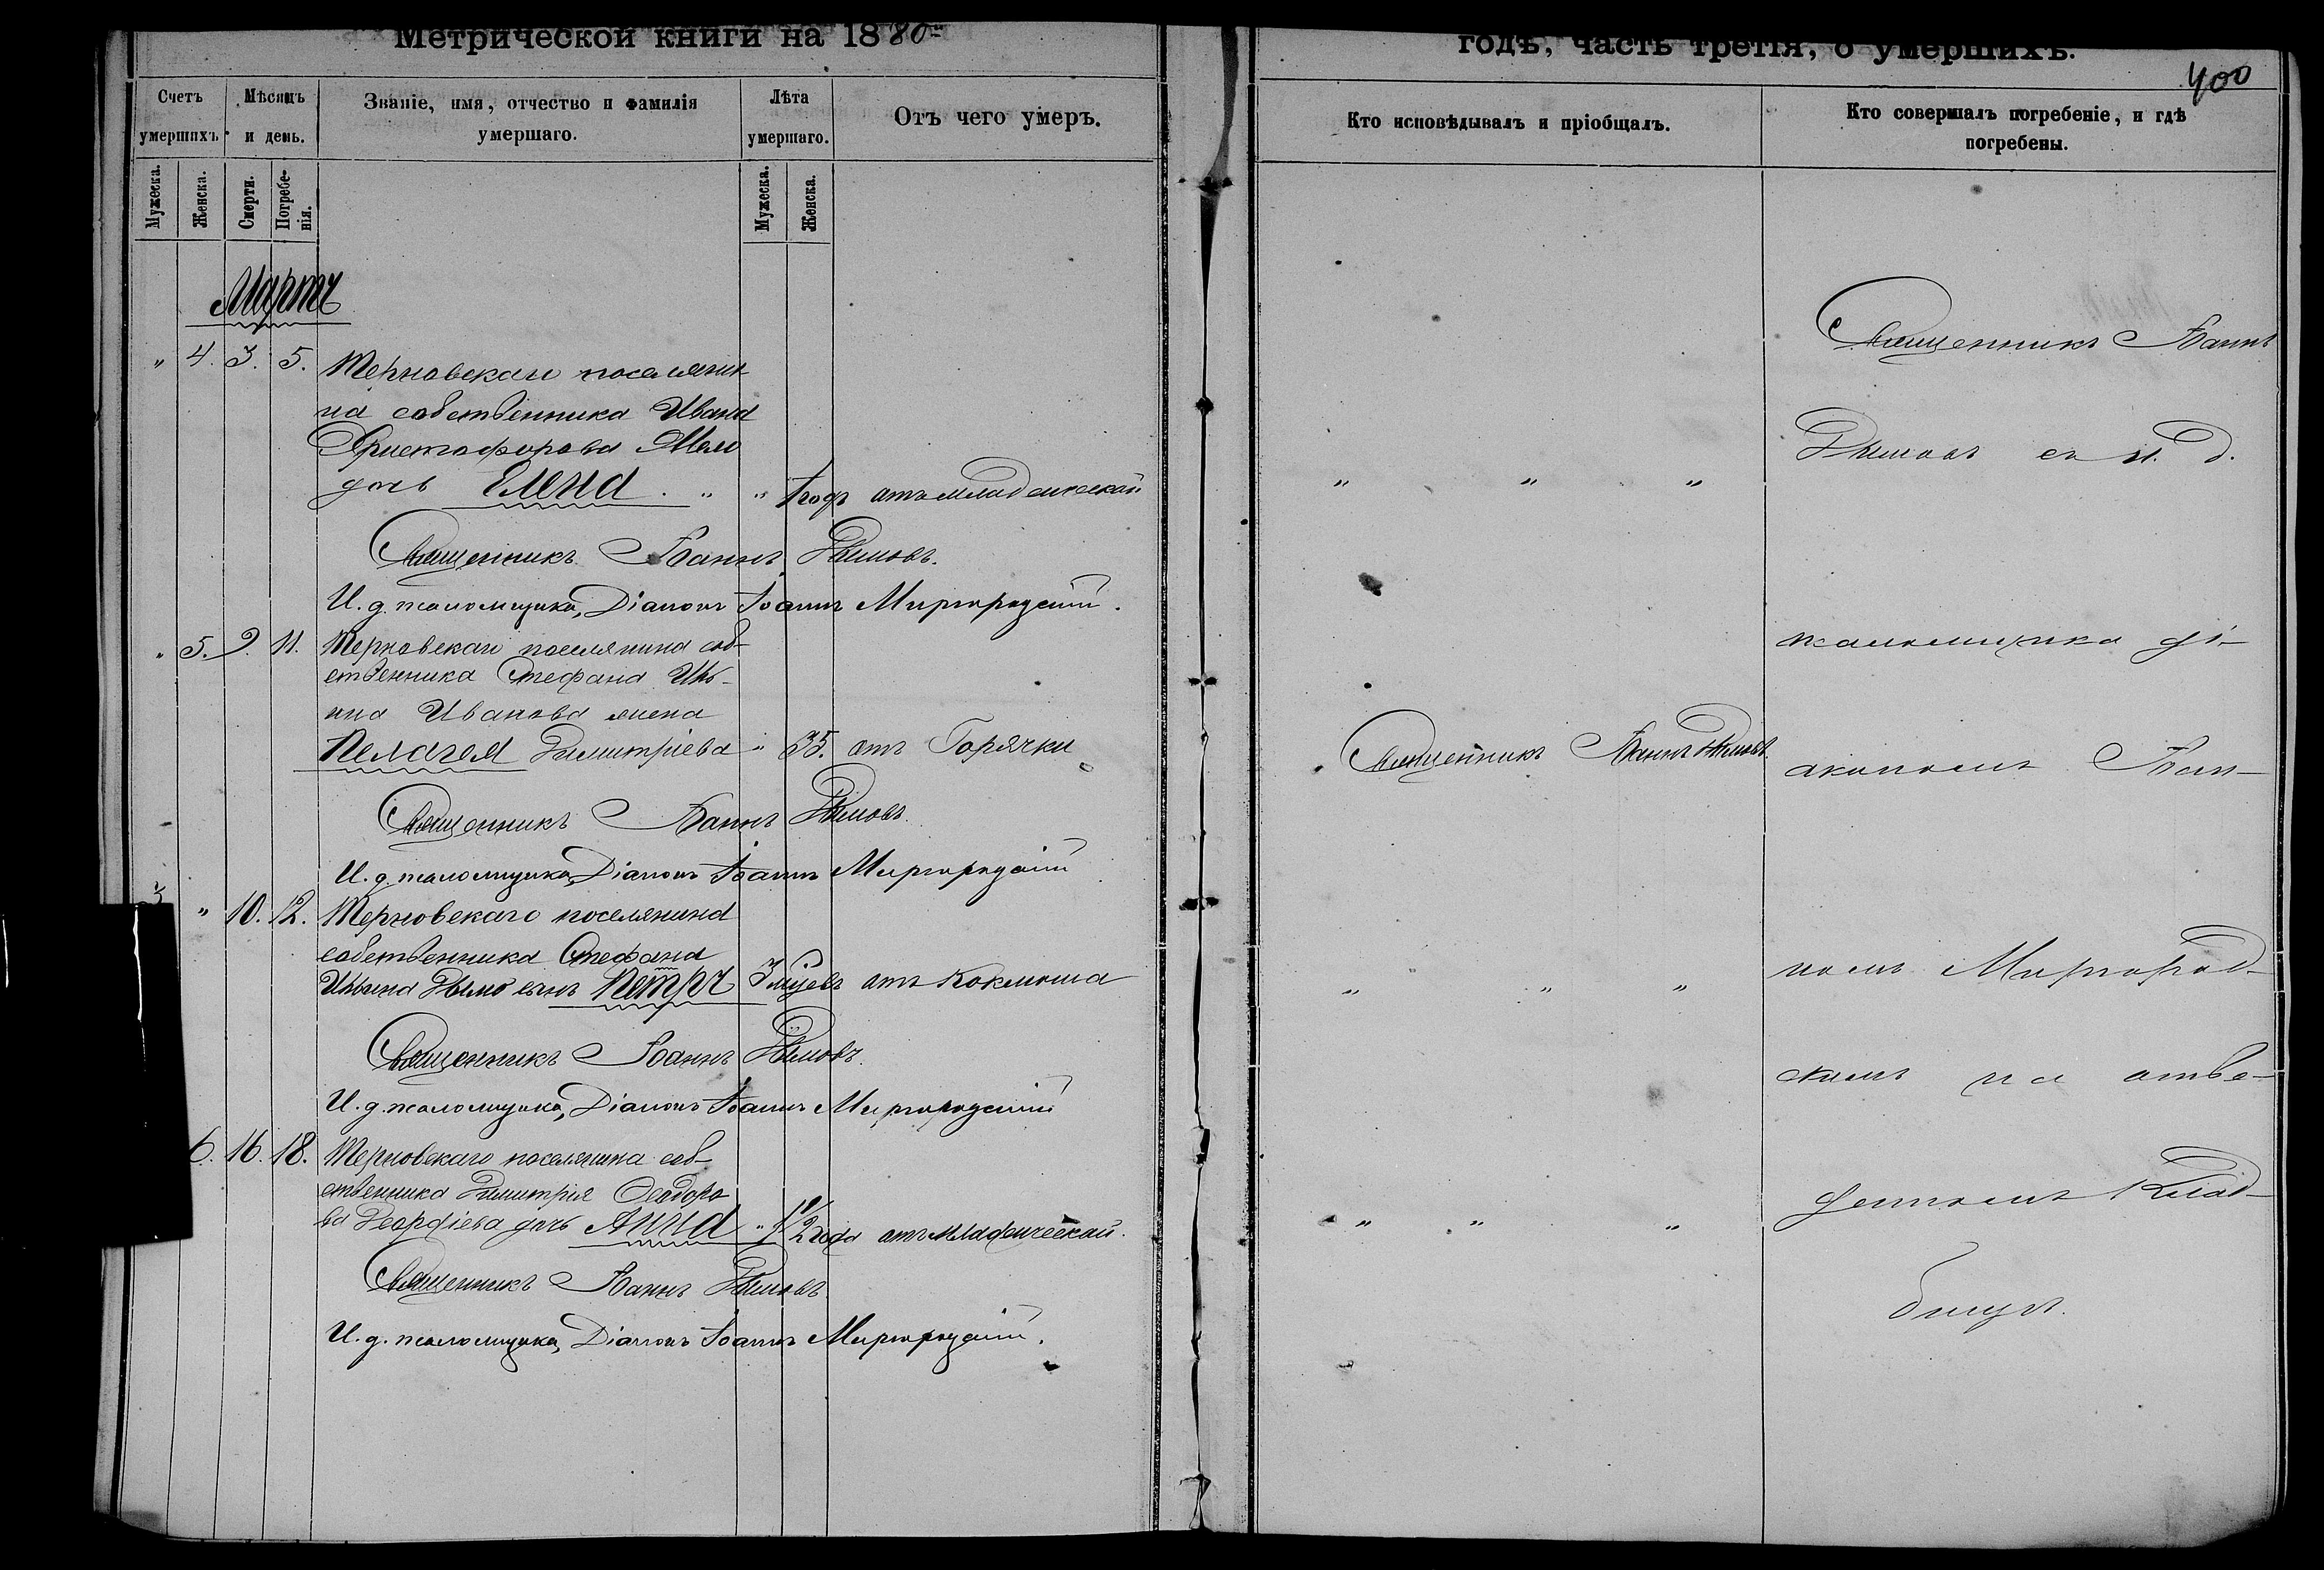 Метрической книги на 1880
годъ, часть третія, о умершихъ.
400
Счетъ умершихъ.
Мѣсяцъ и день.
Званіе, имя, отчество и фамилія умершаго.
Лѣта умершаго.
Отъ чего умеръ.
Кто исповѣдывалъ и пріобщалъ.
Кто совершалъ погребеніе, и гдѣ погребены.
Мужеска.
Женска.
Смерти.
Погребе-
нія.
Мужеска.
Женска.
Мартъ
" 4. 3. 5. Терновскаго поселяни
на собственника Ивана
Христофорова
дочь Елена. " " 1 годъ отъ младенческой " " "
Священникъ Іоаннъ
И. д. псаломщика, Діаконъ Іоаннъ Миргородскій.
" 5. 9. 11. Терновскаго поселянина соб-
ственника Стефана
Иванова жена
Пелагея Димитріева " 35. отъ Горячки Священникъ Іоаннъ
Священникъ Іоаннъ
И. д. псаломщика, Діаконъ Іоаннъ Миргородскій
3 " 10. 12. Терновскаго поселянина
собственника Стефана
сынъ Петръ 3 мѣсяцевъ отъ Коклюша " " "
Священникъ Іоаннъ
И. д. псаломщика, Діаконъ Іоаннъ Миргородскій
6. 16. 18. Терновскаго поселянина соб-
ственника Димитрія Ѳеодоро
ва Георгіева дочь Анна " 1 1/2 года отъ младенческой. " " "
Священникъ Іоаннъ
И. д. псаломщика, Діаконъ Іоаннъ Миргородскій.
Священникъ Іоаннъ
съ и. д.
псаломщика ді-
акономъ Іоан-
номъ Миргород-
скимъ на отве-
денномъ Клад-
бищѣ.